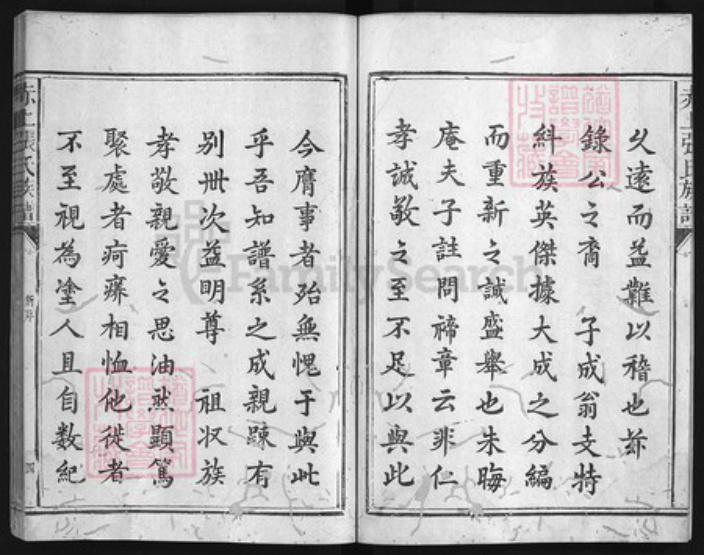 久遠而益難以稽也茲
錄公之裔 子成翁支特
糾族英傑據大成之分編
而重新之誠盛舉也朱晦
庵夫子註問禘章云非仁
孝誠敬之至不足以與此
今膺事者殆無愧于與此
乎吾知譜系之成親踈有
別卌次益明尊 祖収族
孝敬親愛之思油然顯篤
聚處者痾癢相恤他徙者
不至視為塗人且自数紀
赤上張氏族譜
新序
四
赤上張氏族譜
FamilySearch